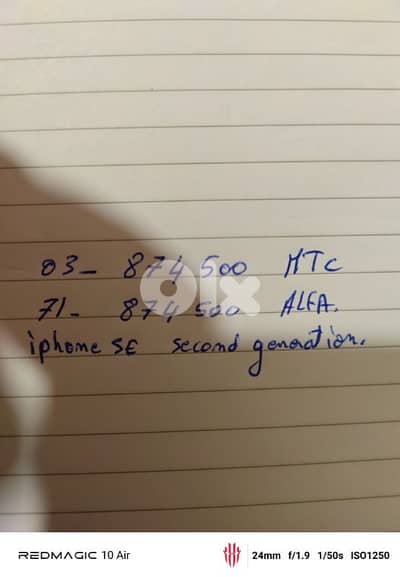 03- 874 500 MTC
71- 874 500 ALFA.
iphone SE second generation.
olx
REDMAGIC 10 Air
24mm f/1.9 1/50s ISO1250